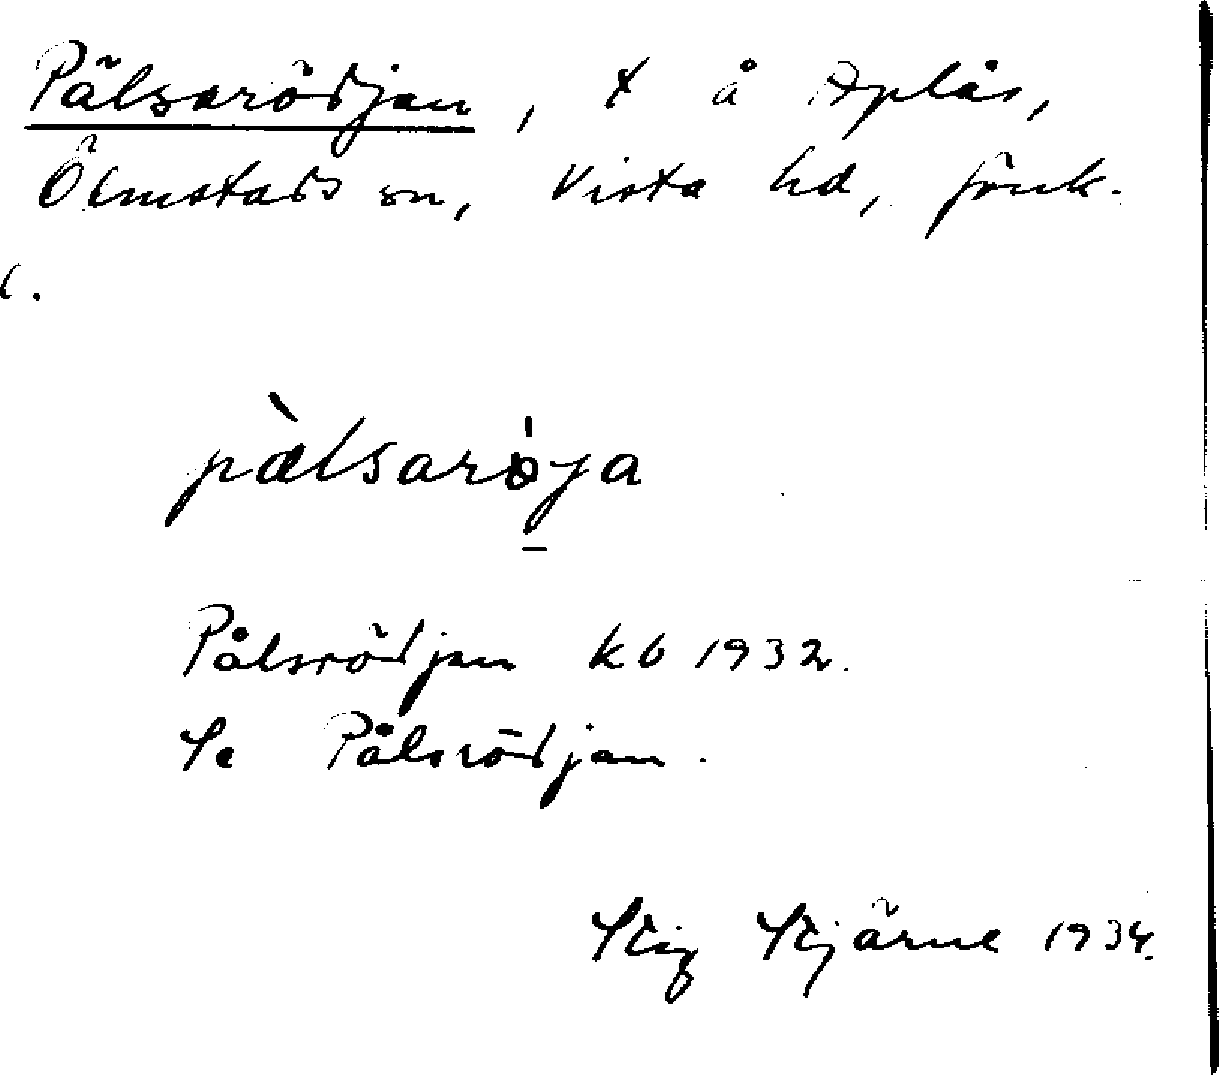 Pälsarödjan, t å Aplås,
Ölmstads sn, Vista hd, Jönk.
l.
pàlsarøja
Pålsrödjan kb 1932.
Se Pålsrödjan.
Stig Stjärne 1934.